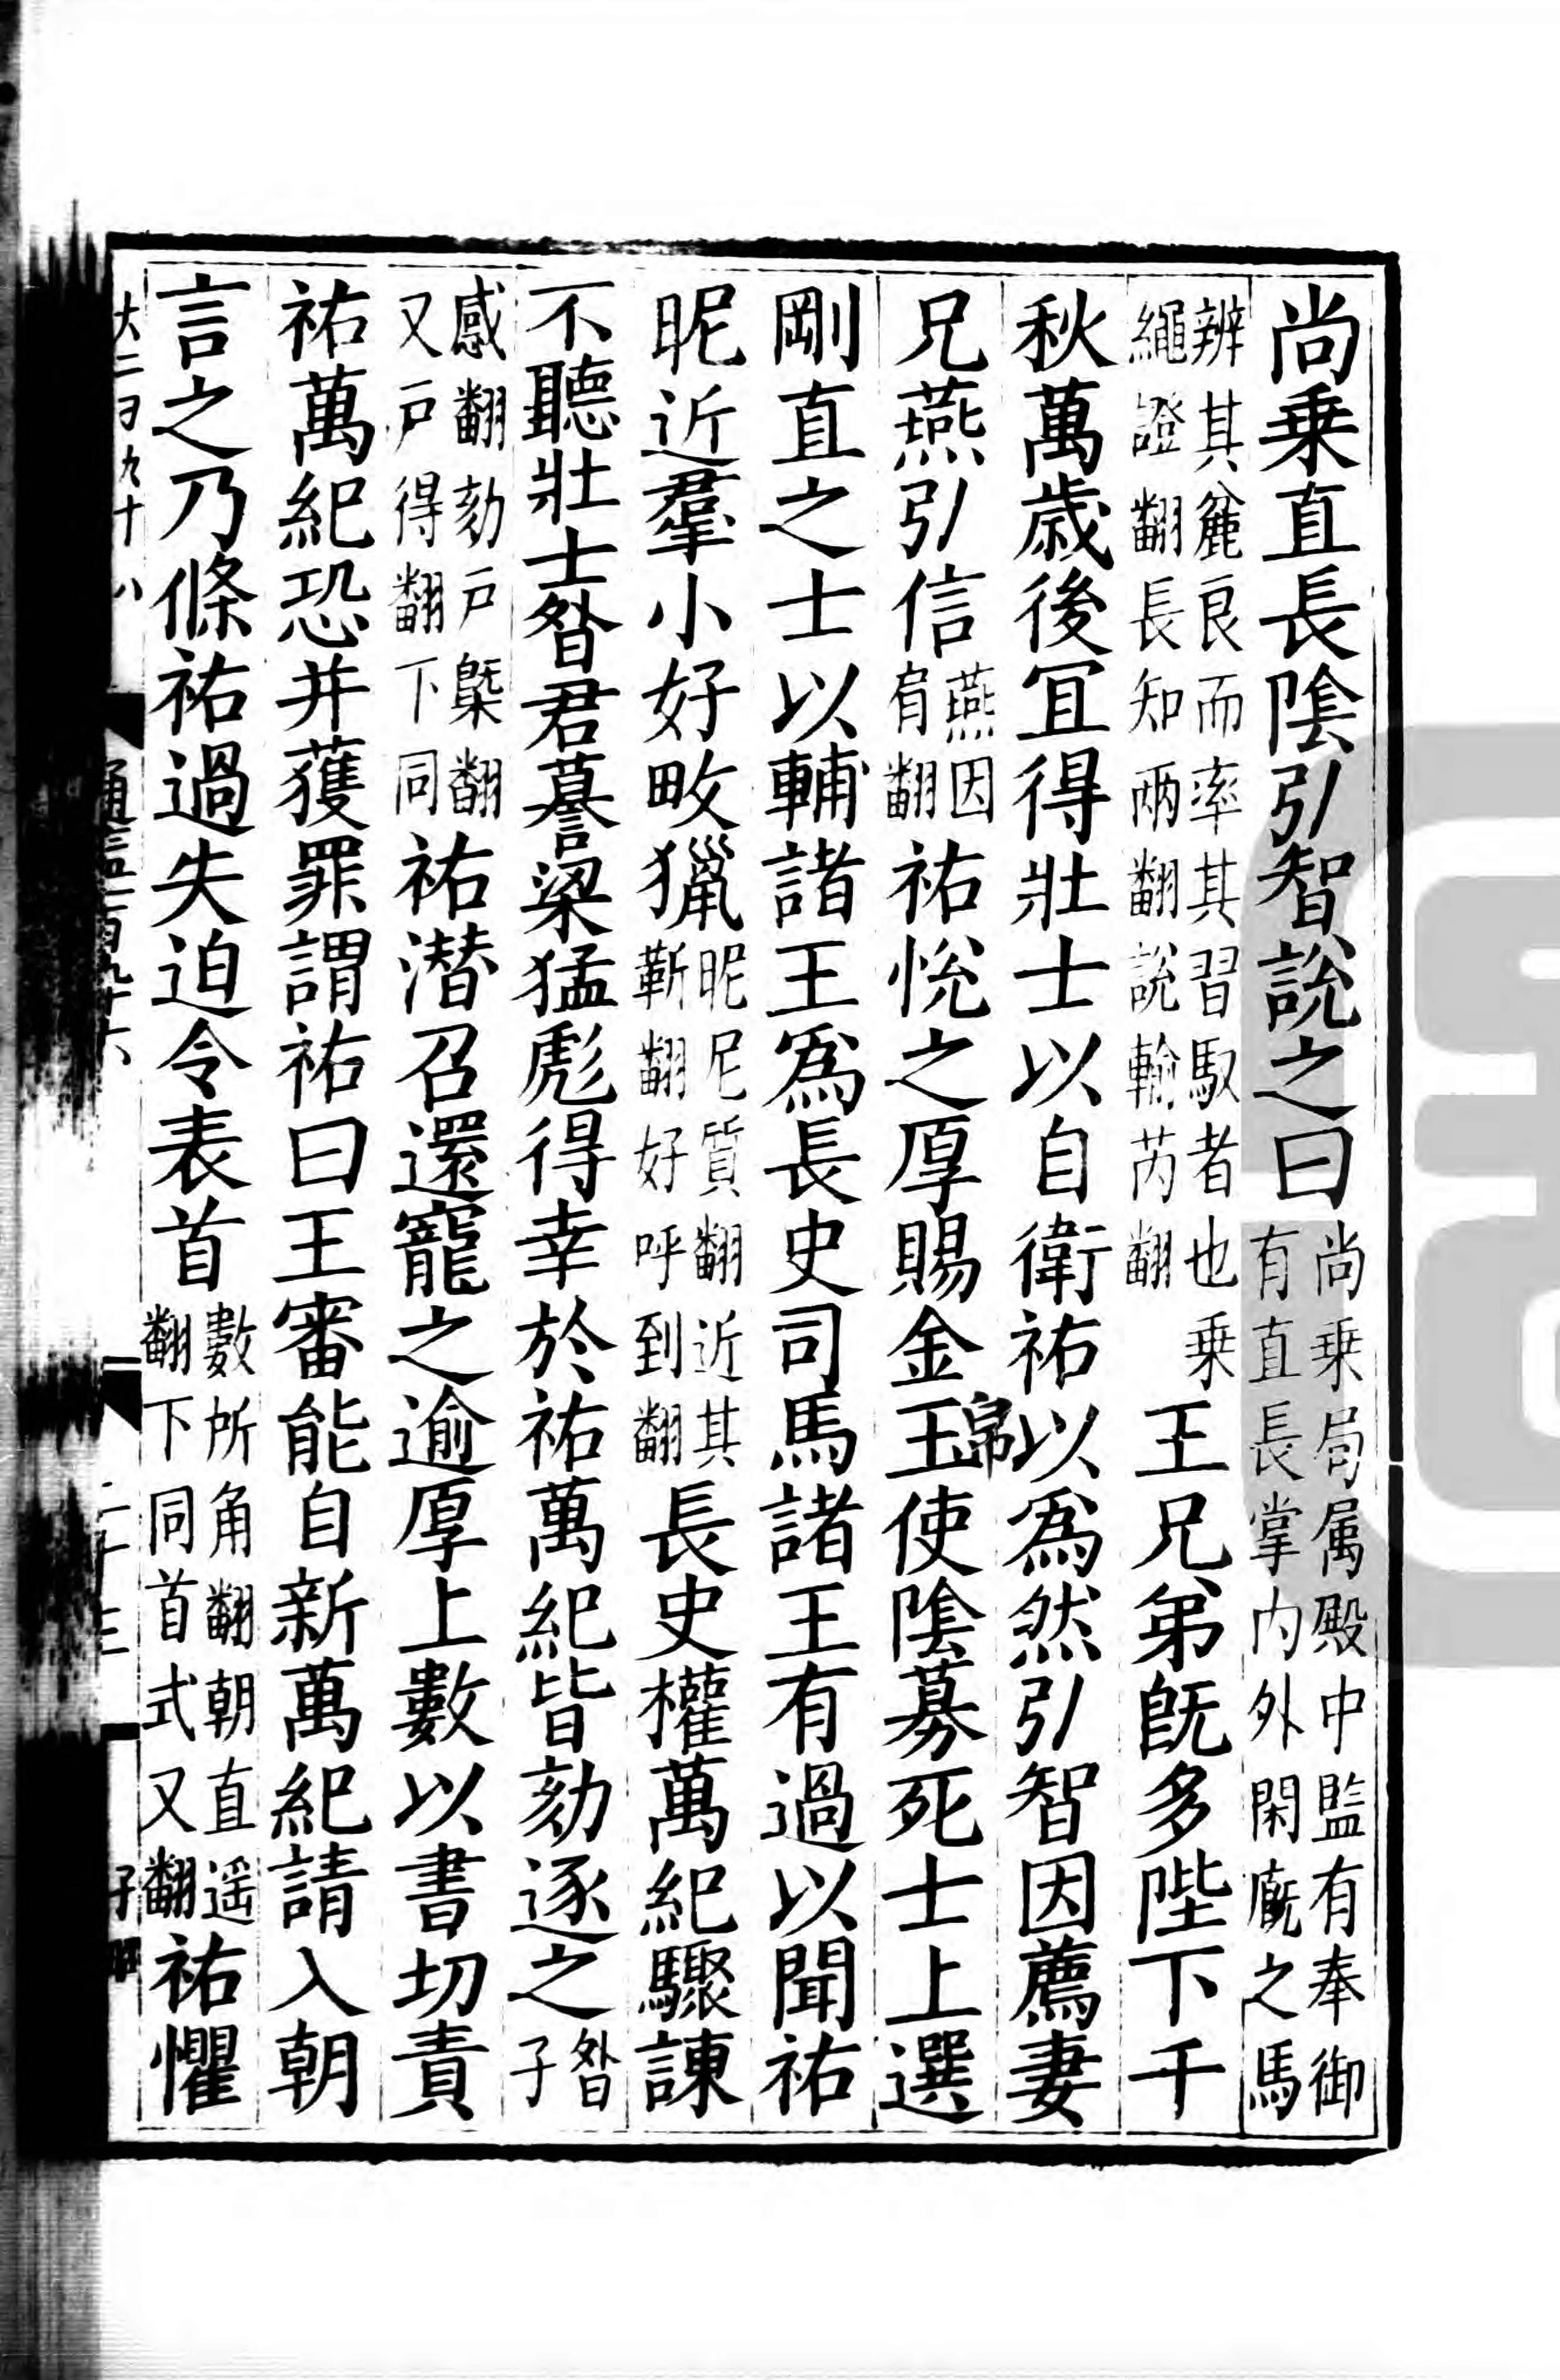 尚乗直長陰引智說之曰尚乗局属殿中監有奉御有直長掌内外閑廐之馬
辨其麄良而率其習馭者也乗繩證翻長知兩翻說輸芮翻王兄弟旣多陛下千
秋萬歳後宜得壯士以自衛祐以爲然引智因薦妻
兄燕引信燕因肩翻祐恱之厚賜金玉帛使陰募死士上選
剛直之士以輔諸王爲長史司馬諸王有過以聞祐
昵近羣小好畋獵昵尼質翻近其靳翻好呼到翻長史權萬紀驟諫
不聽壯士昝君謩梁猛彪得幸於祐萬紀皆劾逐之昝子
感翻劾戶槩翻又戶得翻下同祐潜召還寵之逾厚上數以書切責
祐萬紀恐并獲罪謂祐曰王審能自新萬紀請入朝
言之乃條祐過失迫令表首數所角翻朝直遥翻下同首式又翻祐懼